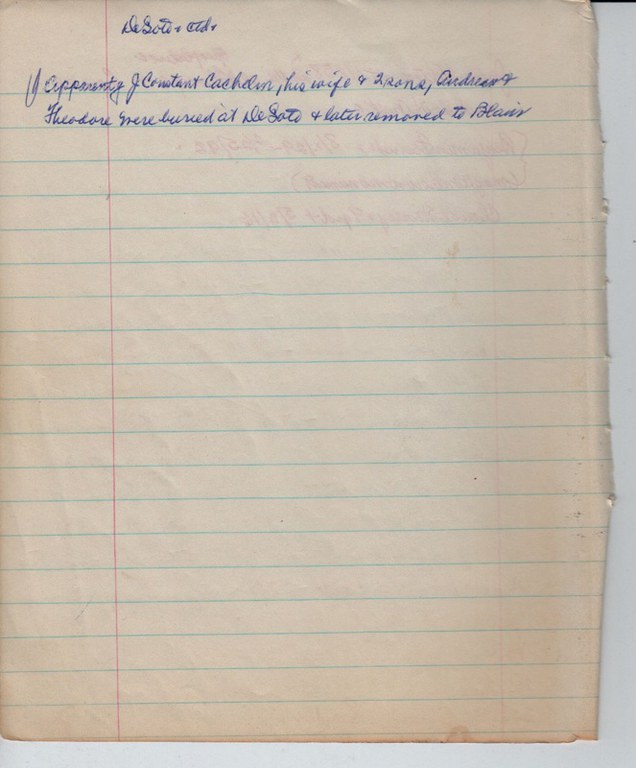 DeSoto - ctd.
1) Apparently J Constant Cachelin, his wife & 2 sons, Andrew &
Theodore were buried at DeSoto & later removed to Blair